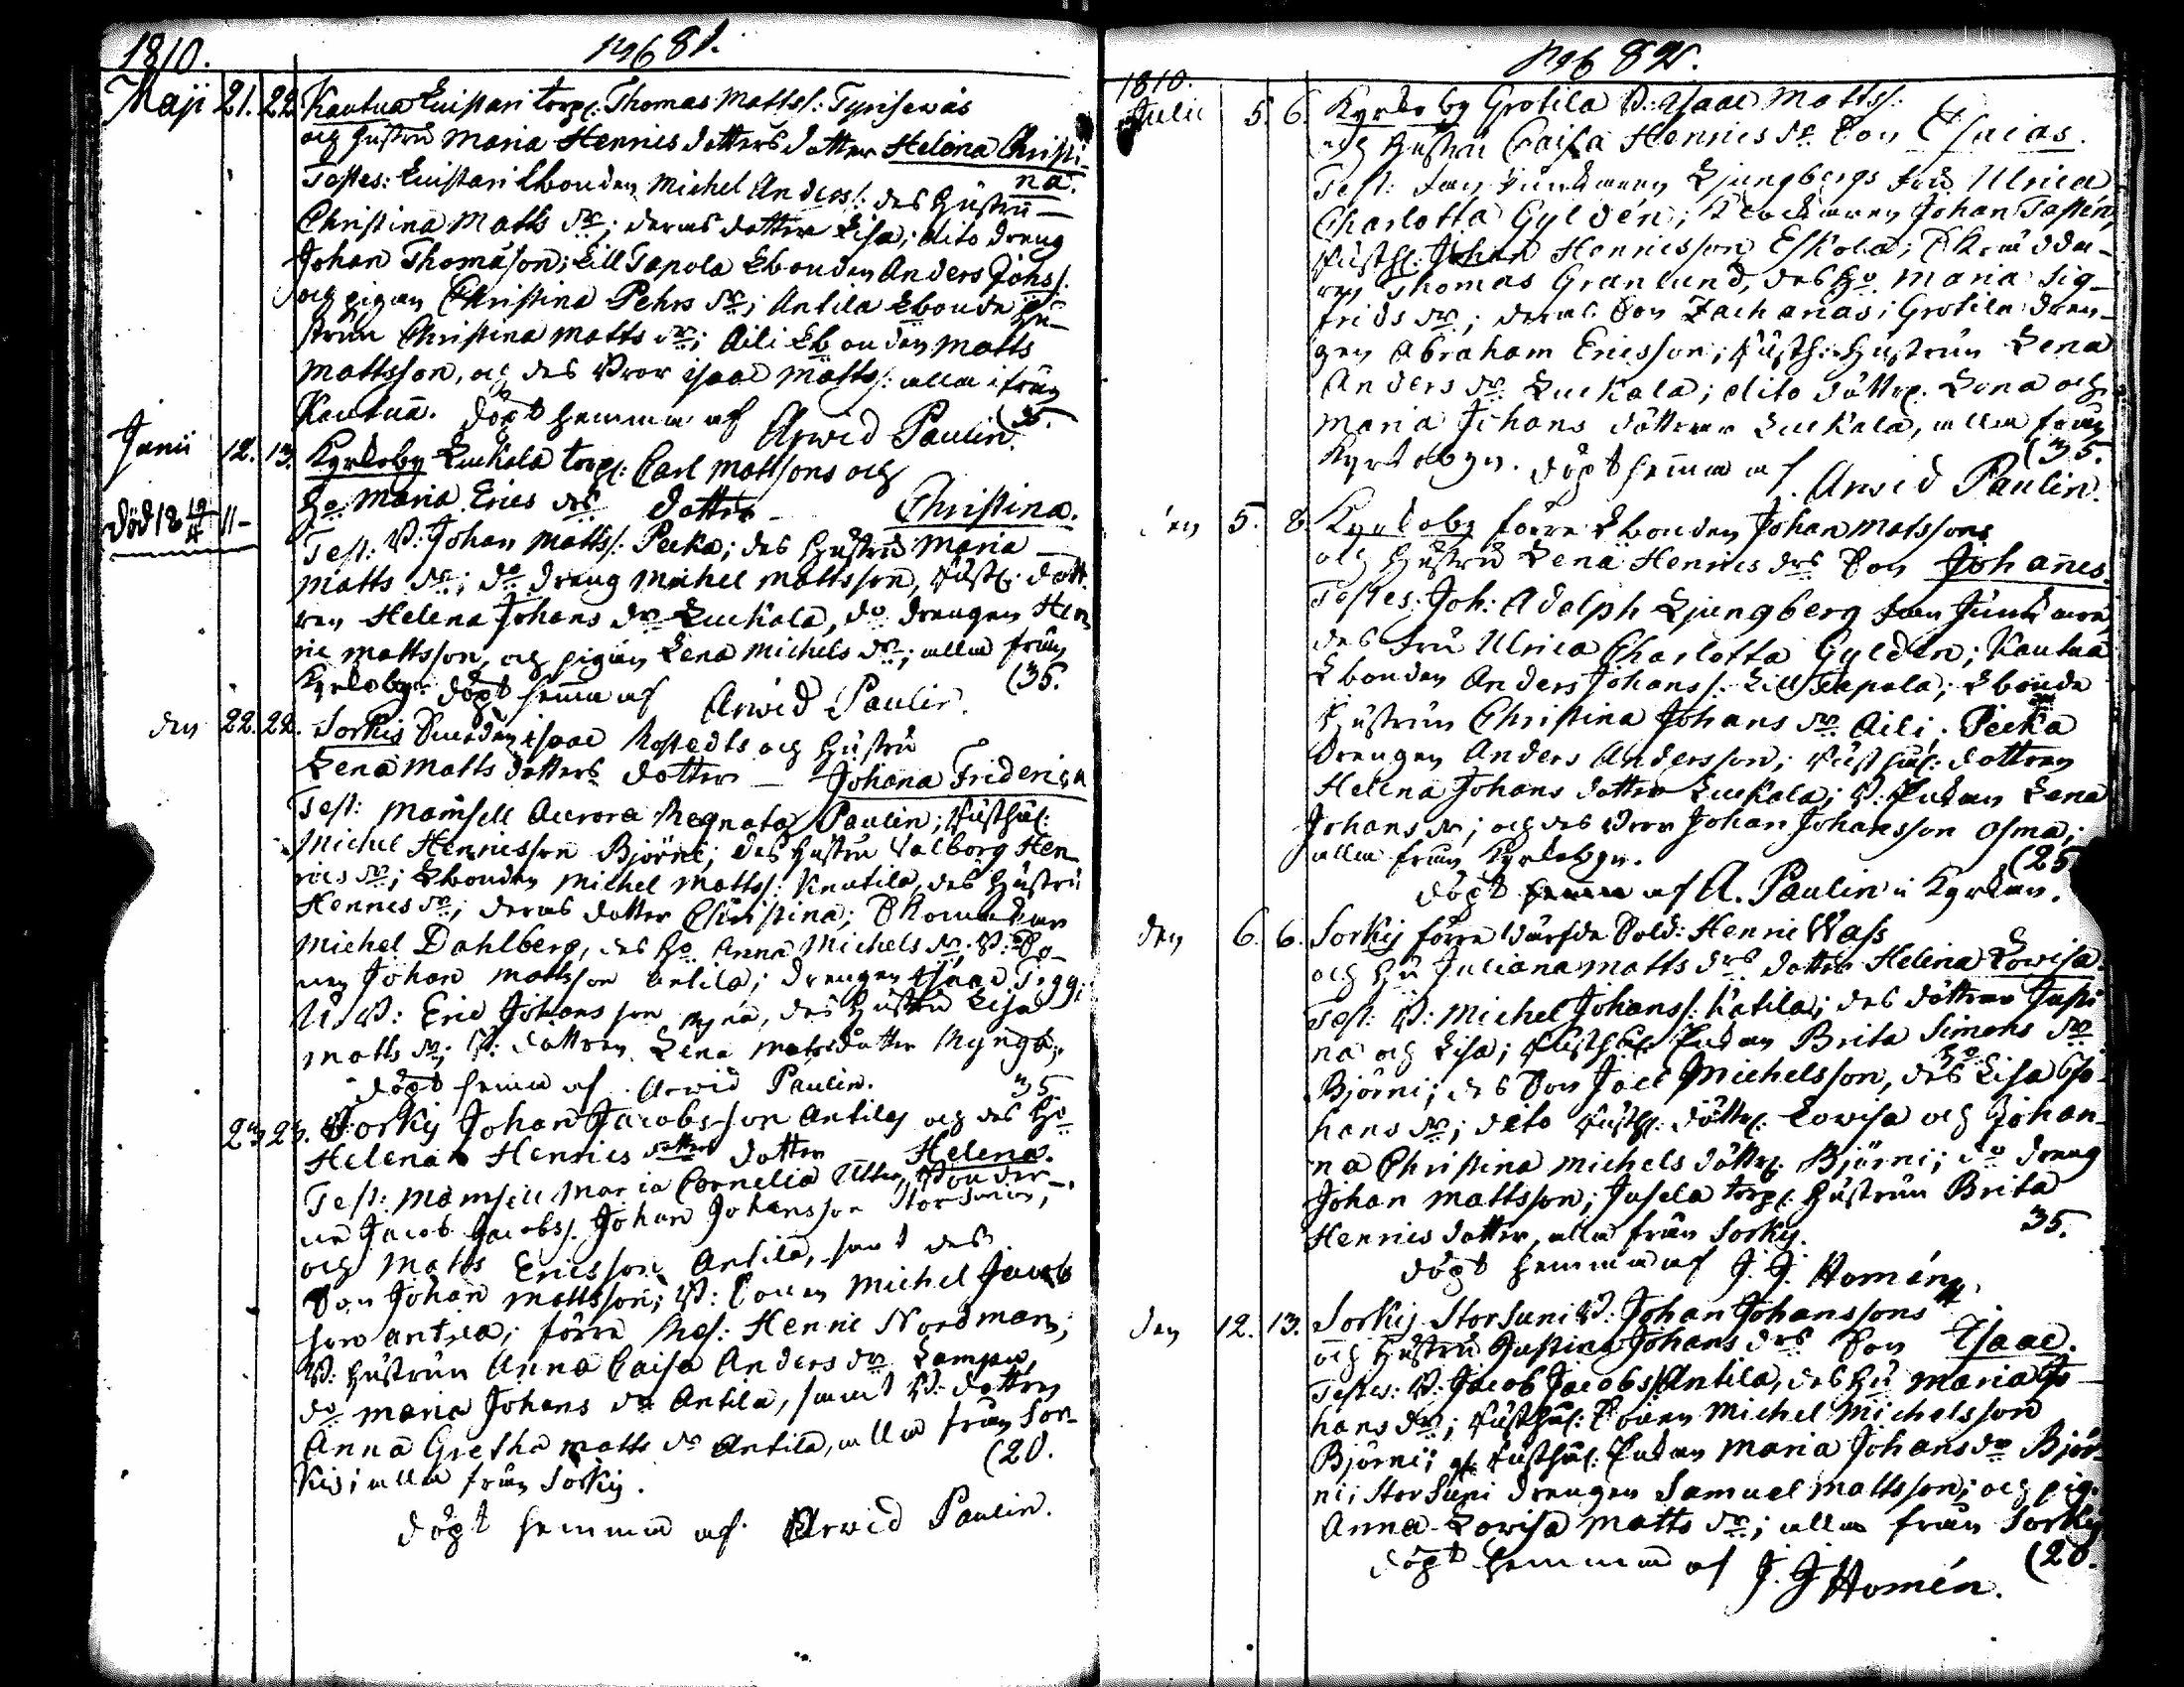 1810.
pag 81.
Maji 21. 22. Kautua Luistari torp: Thomas Mattss: Tyrisewäs
och hustru Maria Henricsdotters dotter Helena Christi-
na.
Testes: Luistari Lbonden Michel Anderss: des hustru
Christina Matts dr; deras dotter Lisa; dito dreng
Johan Thomason; Lill Tapola Lbonden Anders Johss:
och pigan Christina Pehrs dr; Antila Lbonde hu-
strun Christina Matts dr; Aili Lbonden Matts
Mattsson, och des bror Isaac Mattss: alla ifrån
Kautua. döpt hemma af Arwid Paulin. (35.
Junii 12. 13. Kyrkoby Luckala torp: Carl Mattsons och
ho Maria Erics drs dotter Christina.
död 18 19/4 11
Test: B: Johan Mattss: Pecka; des hustru Maria
Matts dr; do dreng Michel Mattsson, dott-
ren Helena Johans dr Luckala, do drengen Hen-
ric Mattsson, och pigan Lena Michels dr; alla från
Kyrkoby. döpt hemma af Arwid Paulin. (35.
den 22. 22. Sorkis Isaac Rostedts och hustru
Lena Matts dotters dotter Johana Friderica
Test: Mamsell Aurora Regnata Paulin;
Michel Henricsson Björni; des hustru Valborg Hen-
rics dr; Lbonden Michel Mattss: Knutila, des hustru
Henrics dr; deras dotter Christina;
Michel Dahlberg, des ho Anna Michels dr; B: So-
nen Johan Mattsson Antila; drengen Isaac
B: Eric Johansson, des hustru Lisa
Matts dr; B: dottren Lena Matsdotter
döpt hemma af Arwid Paulin. 35.
23. 23. Sorkis Johan Jacobsson Antilas och des ho
Helena Henrics dotters dotter Helena.
Test: Mamsell Maria Cornelia Utter, Bönder-
ne Jacob Jacobs: Johan Johansson Storsuni,
och Matts Ericsson Antila, samt des
Son Johan Mattsson; B: Sonen Michel Jacobs
son Antila; förre Henric Nordman;
B: hustrun Anna Caisa Anders dr Lampu,
do Maria Johans dr Antila, samt B: dottren
Anna Gretha Matts dr Antila, alla från Sor-
kis; alla från Sorkis. (20.
döpt hemma af Arwid Paulin.
pag 82.
1810.
Julii 5. 6. Kyrkoby Grotila B: Isaac Mattss:
och hustru Caisa Henrics drs Son Esaias.
Test: Ljungbergs fru Ulrica
Charlotta Gyldén; Klockaren Johan Tastén,
Johan Henricsson Eskola; Skrädda-
ren Thomas Granlund, des ho Maria Sig-
frids dr; deras Son Zacharias; Grotila dren-
gen Abraham Ericsson; hustrun Lena
Anders dr Luckala; dito döttr: Lena och
Maria Johans döttrar Luckala, alla från
Kyrkobyn. döpt hemma af Arwid Paulin. (35.
den 5. 8. Kyrkoby förre Lbonden Johan Matssons
och hustru Lena Henrics drs Son Johannes.
Testes: Joh: Adolph Ljungberg
des fru Ulrica Charlotta Gyldén; Kautua
Lbonden Anders Johanss: Lill Tapola; Lbonde
hustrun Christina Johans dr Aili; Pecka
drengen Anders Andersson; dottren
Helena Johans dotter Luckala; B: Enkan Lena
Johans dr; och des bror Johan Johansson Osma;
alla från Kyrkobyn. (25
döpt hemma af A. Paulin i Kyrkan.
den 6. 6. Sorkis förre Sold: Henric Wass
och hu Juliana Matts drs dotter Helena Lowisa.
Test: B: Michel Johanss: Katila; des döttrar Justi-
na och Lisa; Enkan Brita Simons dr
Björni; des Son Joel Michelsson, des ho Lisa Jo-
hans dr; dito döttr: Lowisa och Johan-
na Christina Michels döttr: Björni; do dreng
Johan Mattsson; Jusela torp: hustrun Brita
Henrics dotter, alla från Sorkis. 35.
döpt hemma af J. J. Homén.
den 12. 13. Sorkis Storsuni B: Johan Johanssons
och hustru Justina Johans drs Son Isaac.
Testes: B: Jacob Jacobss: Antila, des hu Maria Jo-
hans dr; Sonen Michel Michelsson
Björni; Enkan Maria Johans dr Björ-
ni; Storsuni drengen Samuel Mattsson; och pig:
Anna Lovisa Matts dr; alla från Sorkis
(20.
döpt hemma af J. J Homén.